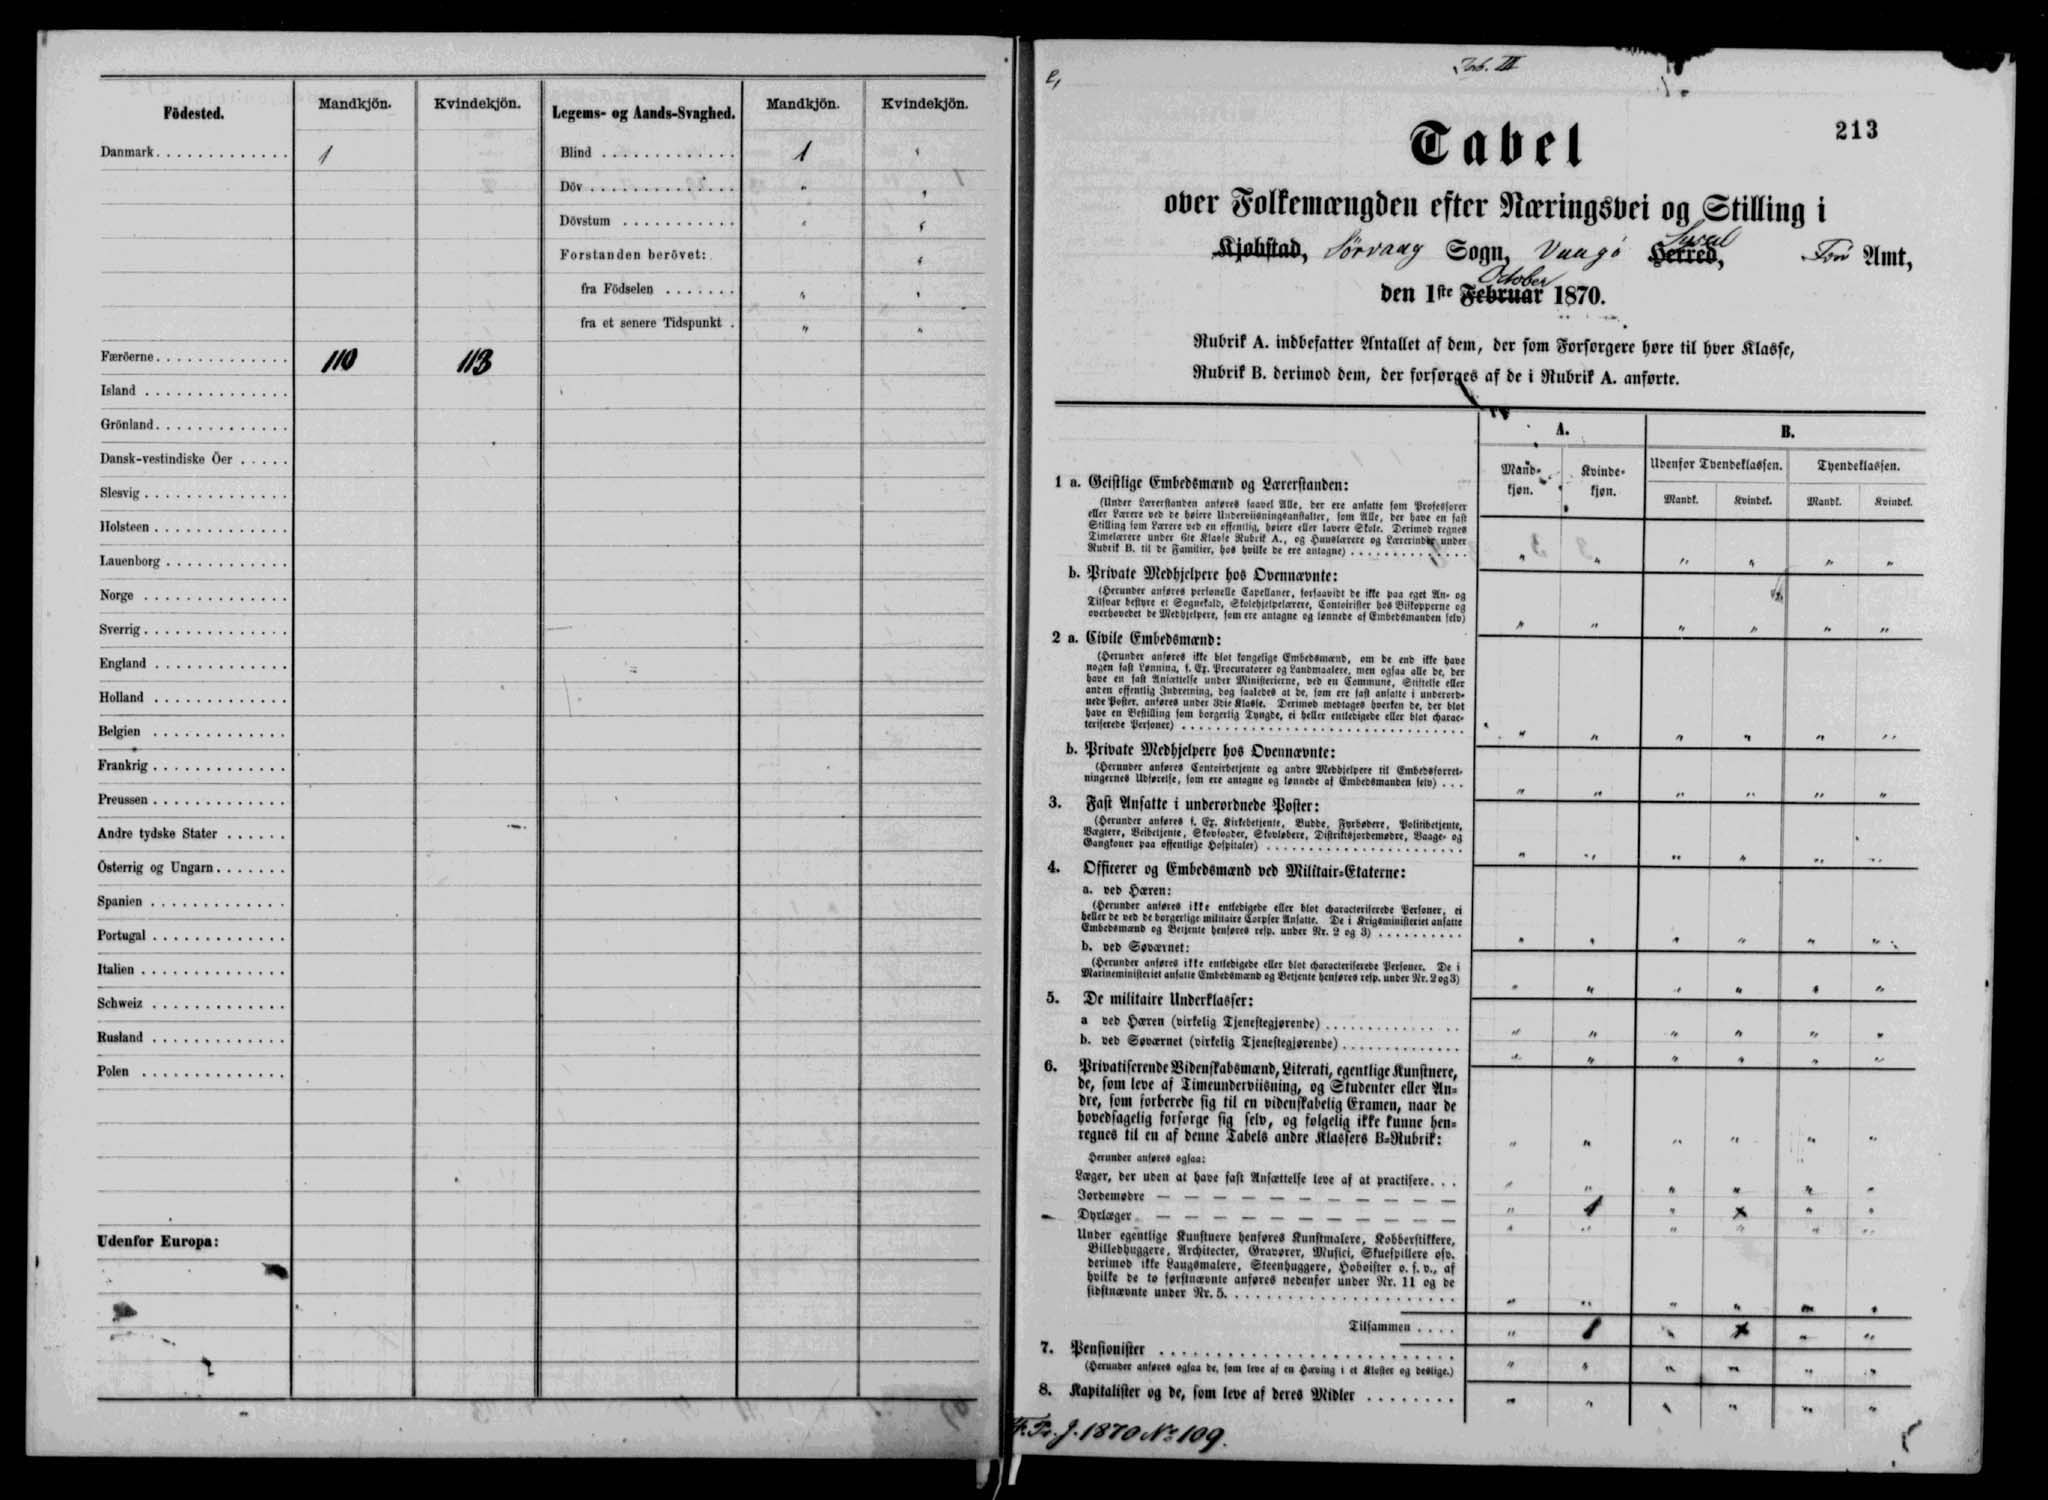 Födested.
Mandkjön.
Kvindekjön.
Legems- og Aands-Svaghed.
Mandkjön.
Kvindekjön.
Danmark 1
Blind 1 "
Döv " "
Dövstum " "
Forstanden berövet: "
fra Födselen " "
fra et senere Tidspunkt " "
Færöerne 110 113
Island
Grönland
Dansk-vestindiske Öer
Slesvig
Holsteen
Lauenborg
Norge
Sverrig
England
Holland
Belgien
Frankrig
Preussen
Andre tydske Stater
Österrig og Ungarn
Spanien
Portugal
Italien
Schweiz
Rusland
Polen
Udenfor Europa:
Tab. III
213
Tabel
over Folkemængden efter Næringsvei og Stilling i
Kjøbstad, Sörvaag Sogn, Vaagö Herred, Syssel Färö Amt,
den 1ste Februar October 1870.
Rubrik A. indbefatter Antallet af dem, der som Forsørgere høre til hver Klasse,
Rubrik B. derimod dem, der forsørges af de i Rubrik A. anførte.
A.
B.
Mand-
kjøn.
Kvinde-
kjøn.
Udenfor Tyendeklassen.
Tyendeklassen.
Mandk.
Kvindek.
Mandk.
Kvindek.
1 a. Geistlige Embedsmænd og Lærerstanden:
(Under Lærerstanden anføres saavel Alle, der ere ansatte som Professorer
eller Lærere ved de høiere Underviisningsanstalter, som Alle, der have en fast
Stilling som Lærere ved en offentlig, høiere eller lavere Skole. Derimod regnes
Timelærere under 6te Klasse Rubrik A., og Huuslærere og Lærerinder under
Rubrik B. til de Familier, hos hvilke de ere antagne) " " " " " "
b. Private Medhjelpere hos Ovennævnte:
(Herunder anføres personelle Capellaner, forsaavidt de ikke paa eget An- og
Tilsvar bestyre et Sognekald, Skolehjelpelærere, Contoirister hos Biskopperne og
overhovedet de Medhjelpere, som ere antagne og lønnede af Embedsmanden selv) " " " " " "
2 a. Civile Embedsmænd:
(Herunder anføres ikke blot kongelige Embedsmænd, om de end ikke have
nogen fast Lønning, f. Ex. Procuratorer og Landmaalere, men ogsaa alle de, der
have en fast Ansættelse under Ministerierne, ved en Commune, Stiftelse eller
anden offentlig Indretning, dog saaledes at de, som ere fast ansatte i underord-
nede Poster, anføres under 3die Klasse. Derimod medtages hverken de, der blot
have en Bestilling som borgerlig Tyngde, ei heller entledigede eller blot charac-
teriserede Personer) " " " " " "
b. Private Medhjelpere hos Ovennævnte:
(Herunder anføres Contoirbetjente og andre Medhjelpere til Embedsforret-
ningernes Udførelse, som ere antagne og lønnede af Embedsmanden selv) " " " " " "
3. Fast Ansatte i underordnede Poster:
(Herunder anføres f. Ex. Kirkebetjente, Budde, Fyrbødere, Politibetjente,
Vægtere, Veibetjente, Skovfogder, Skovløbere, Distriktsjordemødre, Vaage- og
Gangkoner paa offentlige Hospitaler) " " " " " "
4. Officerer og Embedsmænd ved Militair-Etaterne:
a. ved Hæren:
(Herunder anføres ikke entledigede eller blot characteriserede Personer, ei
heller de ved de borgerlige militaire Corpser Ansatte. De i Krigsministeriet ansatte
Embedsmænd og Betjente henføres resp. under Nr. 2 og 3) " " " " " "
b. ved Søværnet:
(Herunder anføres ikke entledigede eller blot characteriserede Personer. De i
Marineministeriet ansatte Embedsmænd og Betjente henføres resp. under Nr. 2 og 3) " " " " " "
5. De militaire Underklasser:
a ved Hæren (virkelig Tjenestegjørende) " " " " " "
b. ved Søværnet (virkelig Tjenestegjørende) " " " " " "
6. Privatiserende Videnskabsmænd, Literati, egentlige Kunstnere,
de, som leve af Timeunderviisning, og Studenter eller An-
dre, som forberede sig til en videnskabelig Examen, naar de
hovedsagelig forsørge sig selv, og følgelig ikke kunne hen-
regnes til en af denne Tabels andre Klassers B-Rubrik: " " " " " "
Herunder anføres ogsaa:
Læger, der uden at have fast Ansættelse leve af at practisere " " " " " "
Jordemødre " 1 " x " "
Dyrlæger " " " " " "
Under egentlige Kunstnere henføres Kunstmalere, Kobberstikkere,
Billedhuggere, Architecter, Gravører, Musici, Skuespillere osv.
derimod ikke Laugsmalere, Steenhuggere, Hoboister o. s. v., af
hvilke de to førstnævnte anføres nedenfor under Nr. 11 og de
sidstnævnte under Nr. 5. " " " " " "
Tilsammen " 1 " x " "
7. Pensionister " " " " " "
(Herunder anføres ogsaa de, som leve af en Hæving i et Kloster og deslige.)
8. Kapitalister og de, som leve af deres Midler " " " " " "
F. Pr. J. 1870 No 109.